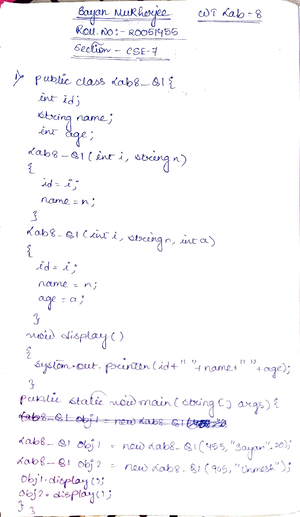 Sayan Mukherjee WT Lab-8
Roll No:- 20051455
Section - CSE-7
1) public class Lab8_Q1{
int id;
String name;
int age;
Lab8_Q1(int i, String n)
{
id = i;
name = n;
}
Lab8_Q1(int i, String n, int a)
{
id = i;
name = n;
age = a;
}
void display()
{
System.out.println(id+" "+name+" "+age);
}
public static void main(String[] args){
Lab8_Q1 obj1 = new Lab8_Q1(
Lab8_Q1 obj1 = new Lab8_Q1(455,"Sayan",20);
Lab8_Q1 obj2 = new Lab8_Q1(905,"Unmesh");
obj1.display();
obj2.display();
} }